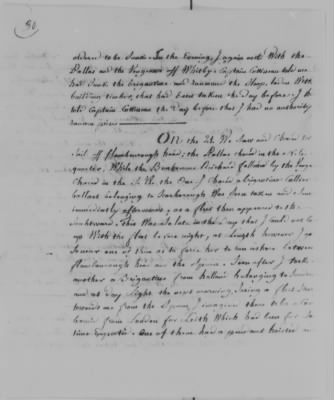 30
ordered to be Sunk. In the Evening I again met With the
Pallas and the Vengeance off Whitby. Captain Cottineau told me
had Sunk the Brigantine and ransomed the Sloop, laden With
building timber, that had been taken the day before. I
told Captain Cottineau the day before that I had no authority
ransom prizes
On the 21. We Saw and Chased two
Sail off Flamborough head, the Pallas chased in the N.E.
quarter, While the Bonhomme Richard followed by the
Chased in the S.W. the One I chased a Brigantine Collier
ballast belonging to Scarborough Was Soon taken and Sunk
immediately afterwards, as a fleet then appeared to the
Southward. This Was So late in the day that I could not
up With the fleet before night, at length however I
one of them as to force her to run ashore between
Flamborough head and the Spurn. Soon after I took
another a Brigantine from Holland belonging to Sunderland
and at day light the next morning, Seeing a fleet
towards me from the Spurn, I imagined them to be a
bound from London for Leith Which had been for
time Expected. One of them had a pendant hoisted